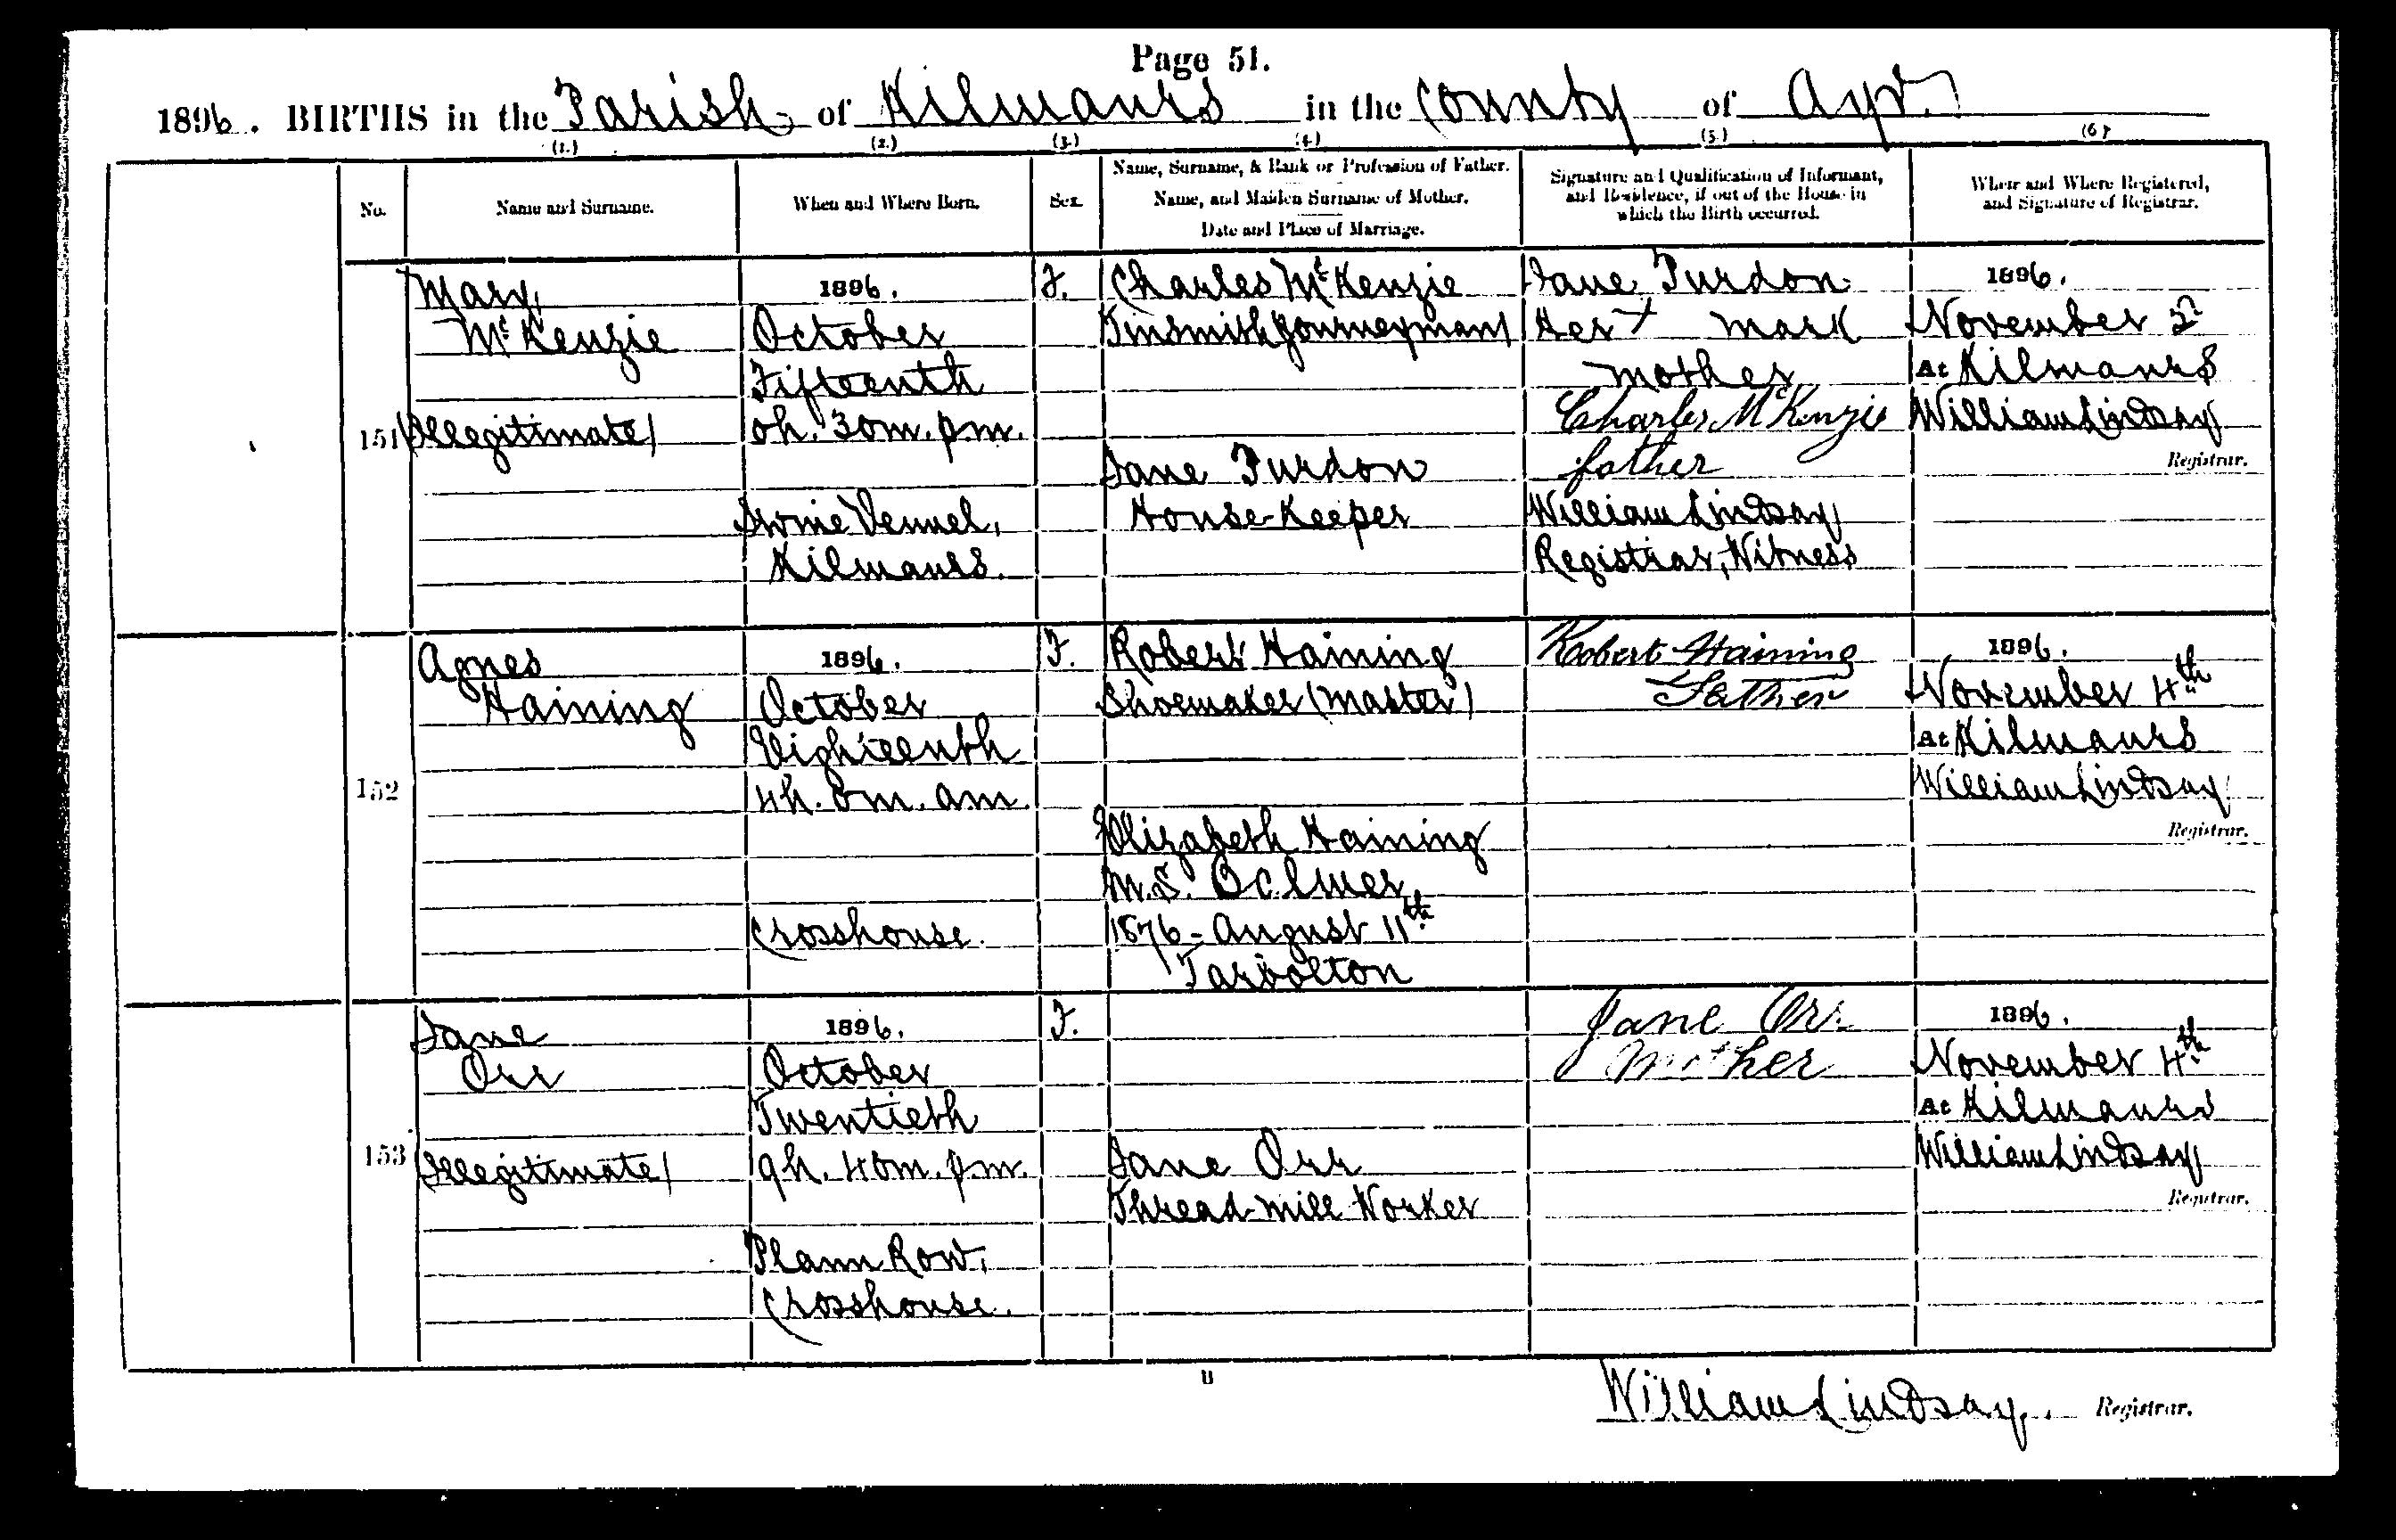 Page 51.
1896. BIRTHS in the Parish of Kilmaurs in the County of Ayr.
(1.) (2.) (3.) (4.) (5.) (6.)
No.
Name and Surname.
When and Where Born.
Sex.
Name, Surname, & Rank or Profession of Father.
Name, and Maiden Surname of Mother.
Date and Place of Marriage.
Signature and Qualification of Informant,
and Residence, if out of the House in
which the Birth occurred.
When and Where Registered,
and Signature of Registrar.
151
Mary
McKenzie
(Illegitimate)
1896.
October
Fifteenth
0h. 30m. p.m.
Irvine Vennel,
Kilmaurs.
F.
Charles McKenzie
Tinsmith (Journeyman)
Jane Purdon
House-Keeper
Jane Purdon
Her x Mark
Mother
Charles McKenzie
father
William Lindsay
Registrar, Witness
1896.
November 2d
At Kilmaurs
William Lindsay
Registrar.
152
Agnes
Haining
1896.
October
Eighteenth
4h. 0m. am.
Crosshouse.
F.
Robert Haining
Shoemaker (Master)
Elizabeth Haining
M.S.
1876 - August 11th
Tarbolton
Robert Haining
Father
1896.
November 4th
At Kilmaurs
William Lindsay
Registrar.
153
Jane
Orr
(Illegitimate)
1896.
October
Twentieth
9h. 40m. p.m.
Plann Row,
Crosshouse.
F.
Jane Orr
Thread-mill Worker
Jane Orr
Mother
1896.
November 4th
At Kilmaurs
William Lindsay
Registrar.
William Lindsay. Registrar.